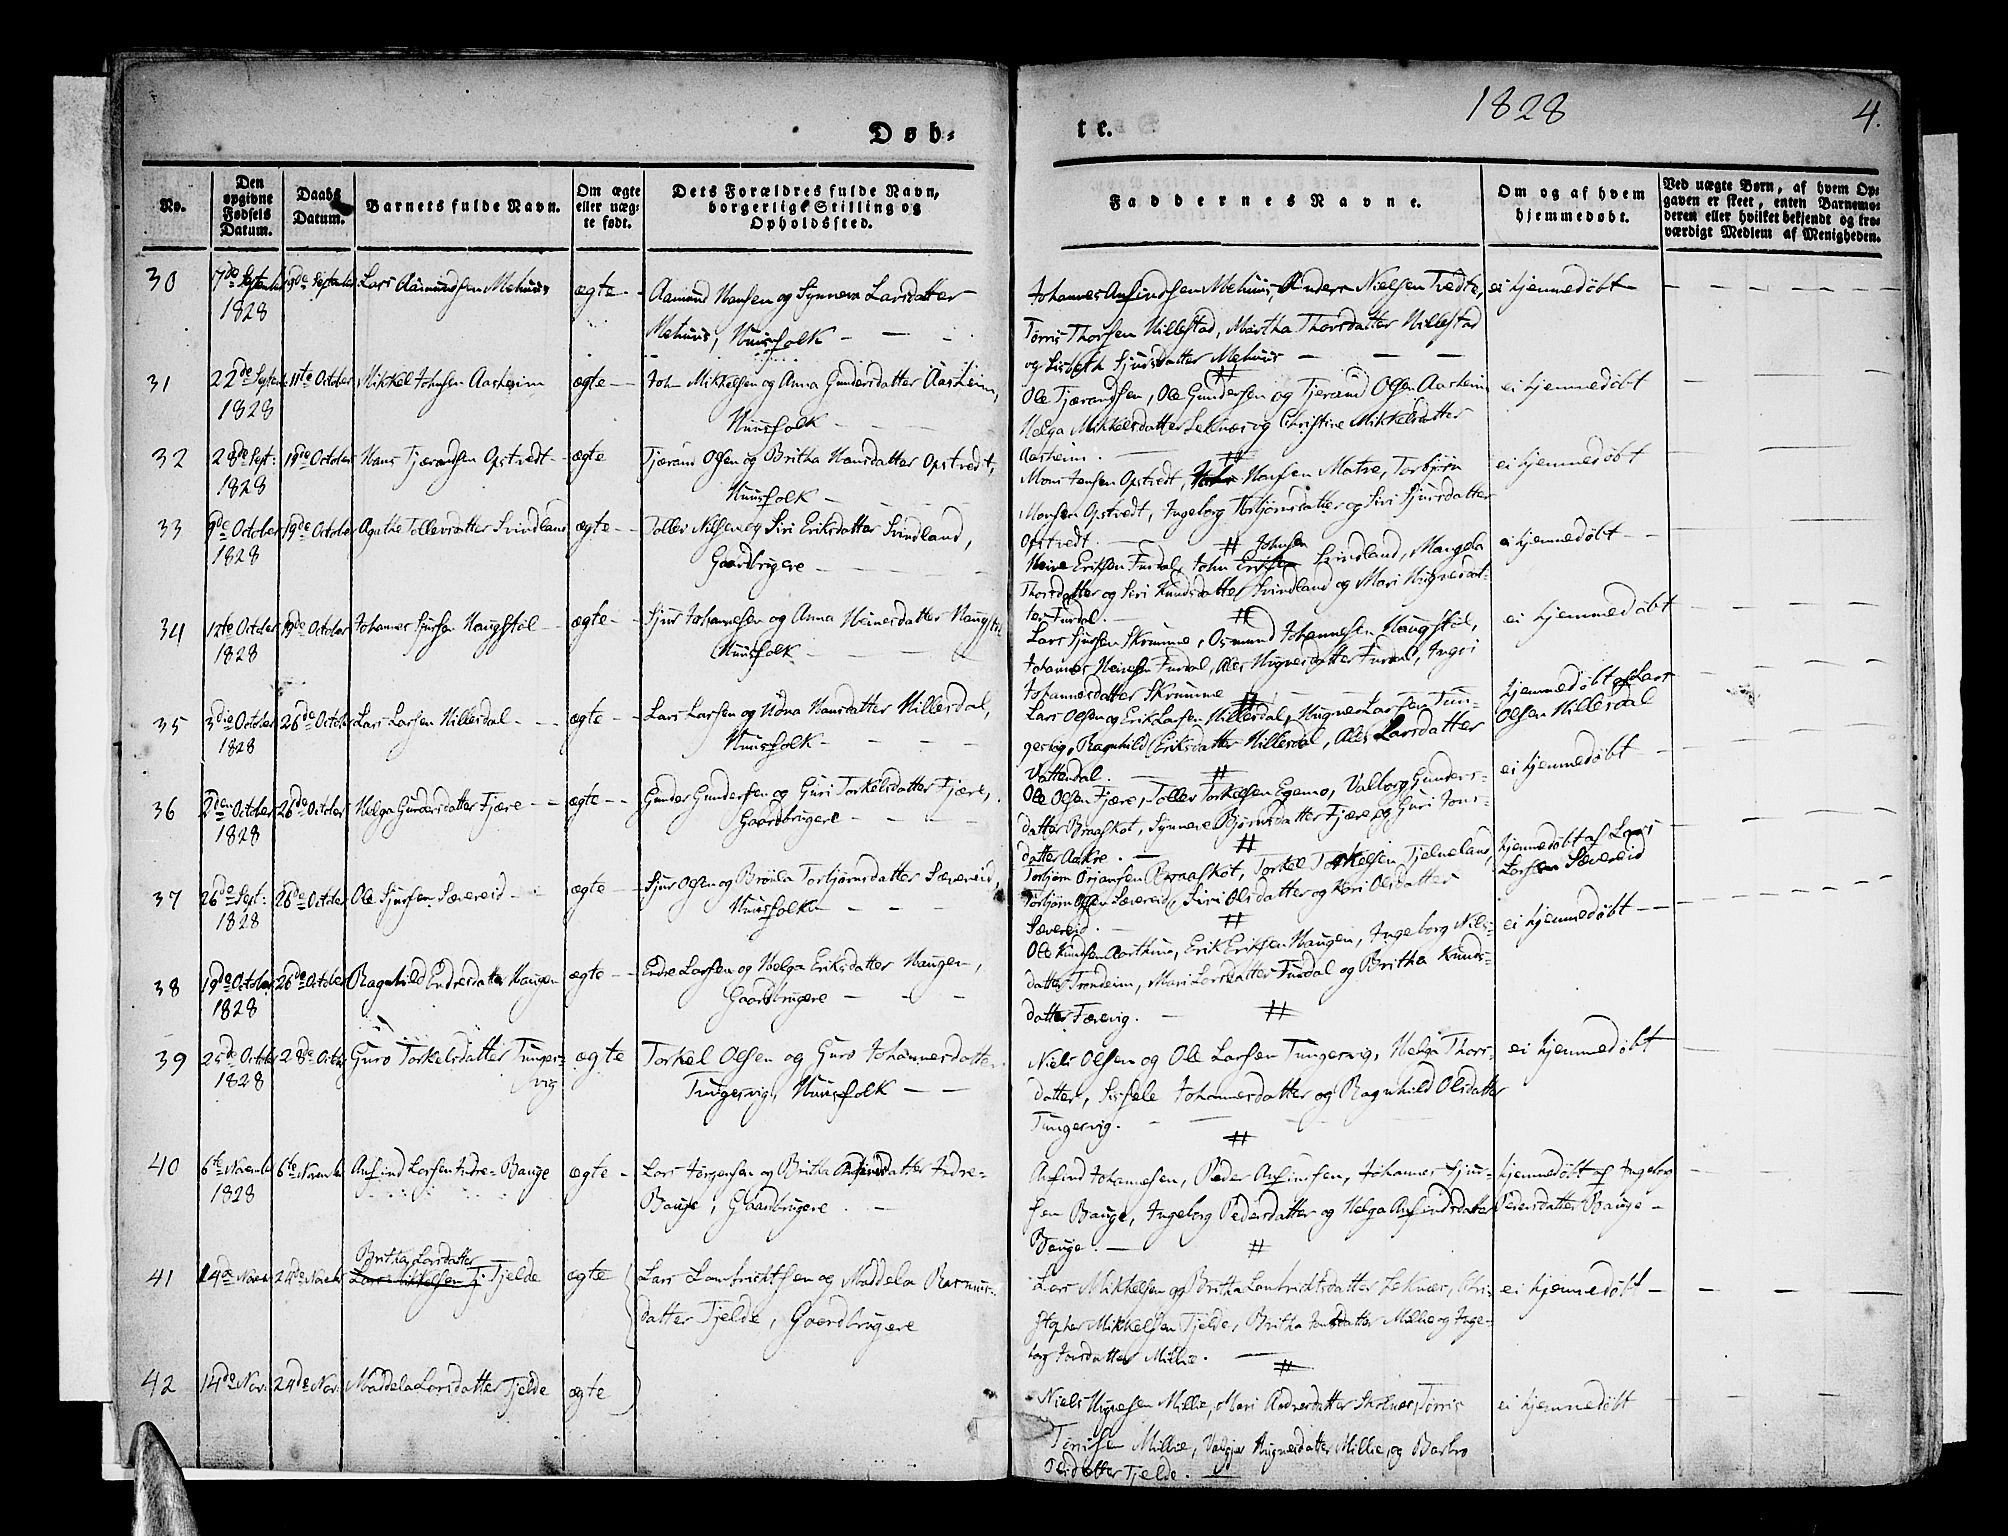 1828
4.
Døb-
te.
No.
Den opgivne Fødsels Datum.
Daabs Datum.
Barnets fulde Navn.
Om ægte eller uægte født.
Dets Forældres fulde Navn, borgerlige Stilling og Opholdssted.
Faddernes Navne.
Om og af hvem hjemmedøbt.
Ved uægte Børn, af hvem Opgaven er skeet, enten Barnemoderen eller hvilket bekjendt og troværdigt Medlem af Menigheden.
30
Lars Aamundsen Mehuus
ægte
Aamund Hansen og Synneva Larsdatter
Mehuus, Huusfolk
1828
Johannes Anfindsen Mehuus, Anders Nielsen Tvedte,
Torris Thorsen Hillestad, Martha Thorsdatter Hillestad
og Lisbeth Sjursdatter Mehuus
ei hjemmedøbt
31
22de Septem
11te October
Mikkel Johnsen Aasheim
ægte
John Mikkelsen og Anna Gundersdatter Aasheim,
Huusfolk
1828
Ole Tjærandsen, Ole Gundersen og Tjerand Olsen Aasheim
Helga Mikkelsdatter Leknæs og Christine Mikkelsdatter
Aasheim.
ei hjemmedøbt
32
28de Sept:
October
Hans Tjærandsen Opstvedt
ægte
Tjærand Olsen og Britha Hansdatter Opstvedt,
Huusfolk
1828
Mons Jensen Opstvedt, Hansen Matre, Torbjørn
Monsen Opstvedt, Ingeborg Torbjørnsdatter og Siri Sjursdatter
Opstvedt.
ei hjemmedøbt
33
9de October
19de October
Agathe Tollevsdatter Svindland
ægte
Tollev Nilsen og Siri Eriksdatter Svindland,
Gaardbrugere
1828
Johnsen
Heine Eriksen Furdal, John Eriksen Svindland, Mangela
Thorsdatter og Siri Knudsdatter Svindland og Mari Hugnesdat-
ter Furdal.
ei hjemmedøbt
34
12te October
19de October
Johannes Sjursen Haugstøl
ægte
Sjur Johannesen og Anna Heinesdatter Haugstøl
Huusfolk
1828
Lars Sjursen Skrumme, Osmund Johannesen Haugstøl,
Johannes Heinesen Furdal, Ales Hugnesdatter Furdal, Ingri
Johannesdatter Skrumme
ei hjemmedøbt
35
3die October
26de October
Lars Larsen Hillesdal
ægte
Lars Larsen og Udna Hansdatter Hillesdal,
Huusfolk
1828
Lars Olsen og Erik Larsen Hillesdal, Hugnes Larsen Tun-
gesvig, Ragnhild Eriksdatter Hillesdal, Ales Larsdatter
Vattendal.
hjemmedøbt af Lars
Olsen Hillesdal
36
2den October
26de October
Helga Gundersdatter Fjære
ægte
Gunder Gundersen og Guri Torkelsdatter Fjære,
Gaardbrugere
1828
Ole Olsen Fjære, Tollev Torkelsen Egemo, Valborg Gunders-
datter Braaskot, Synneve Bjørnsdatter Fjære og Guri Jons-
datter Aakre.
ei hjemmedøbt
37
26de Sept:
26de October
Ole Sjursen Sævereid
ægte
Sjur Olsen og Brønla Torbjørnsdatter Sævereid,
Huusfolk
1828
Torbjørn Ørjansen Braaskot, Torkel Torkelsen Tjelmeland,
Torbjørn Olsen Sævereid, Siri Olsdatter og Kari Olsdatter
Sævereid.
hjemmedøbt af Lars
Larsen Sævereid
38
19de October
26de October
Ragnhild Endresdatter Haugen
ægte
Endre Larsen og Helga Eriksdatter Haugen,
Gaardbrugere
1828
Ole Knudsen Aarthun, Erik Eriksen Haugen, Ingeborg Niels-
datter Trondeim, Mari Larsdatter Furdal og Britha Knuds-
datter Færevig.
ei hjemmedøbt
39
25de October
28de Octob
Guro Torkelsdatter Tunges-
vig
ægte
Torkel Olsen og Guro Johannesdatter
Tungesvig, Huusfolk
1828
Niels Olsen og Ole Larsen Tungesvig, Helga Thors-
datter, Sissele Johannesdatter og Ragnhild Olsdatter
Tungesvig.
ei hjemmedøbt
40
6te Novemb
6te Novemb
Anfind Larsen Indre-Bauge
ægte
Lars Jørgensen og Britha Anfindsdatter Indre-
Bauge, Gaardbrugere
1828
Anfind Johannesen, Peder Anfindsen, Johannes Sjur-
sen Bauge, Ingeborg Pedersdatter og Helga Anfindsdatter
Bauge.
hjemmedøbt af Ingeborg
Pedersdatter Bauge
41
14de Nov
24de Novb
Britha Larsdatter
Lars Mikkelsen Tj. Tjelde
ægte
Lars Lambrichtsen og Maddela Rasmus-
datter Tjelde, Gaardbrugere
Lars Mikkelsen og Britha Lambrichtsdatter Leknæs, Chri-
stopher Mikkelsen Tjelde, Britha datter Millie og Inge-
borg datter Millie.
ei hjemmedøbt
42
14de Nov.
24de Nov.
Maddela Larsdatter Tjelde
ægte
Niels Hugnesen Millie, Mari Andersdatter Torris
Torrisen Millie, Hugnesdatter Millie, og Barbro
Olsdatter Tjelde.
ei hjemmedøbt